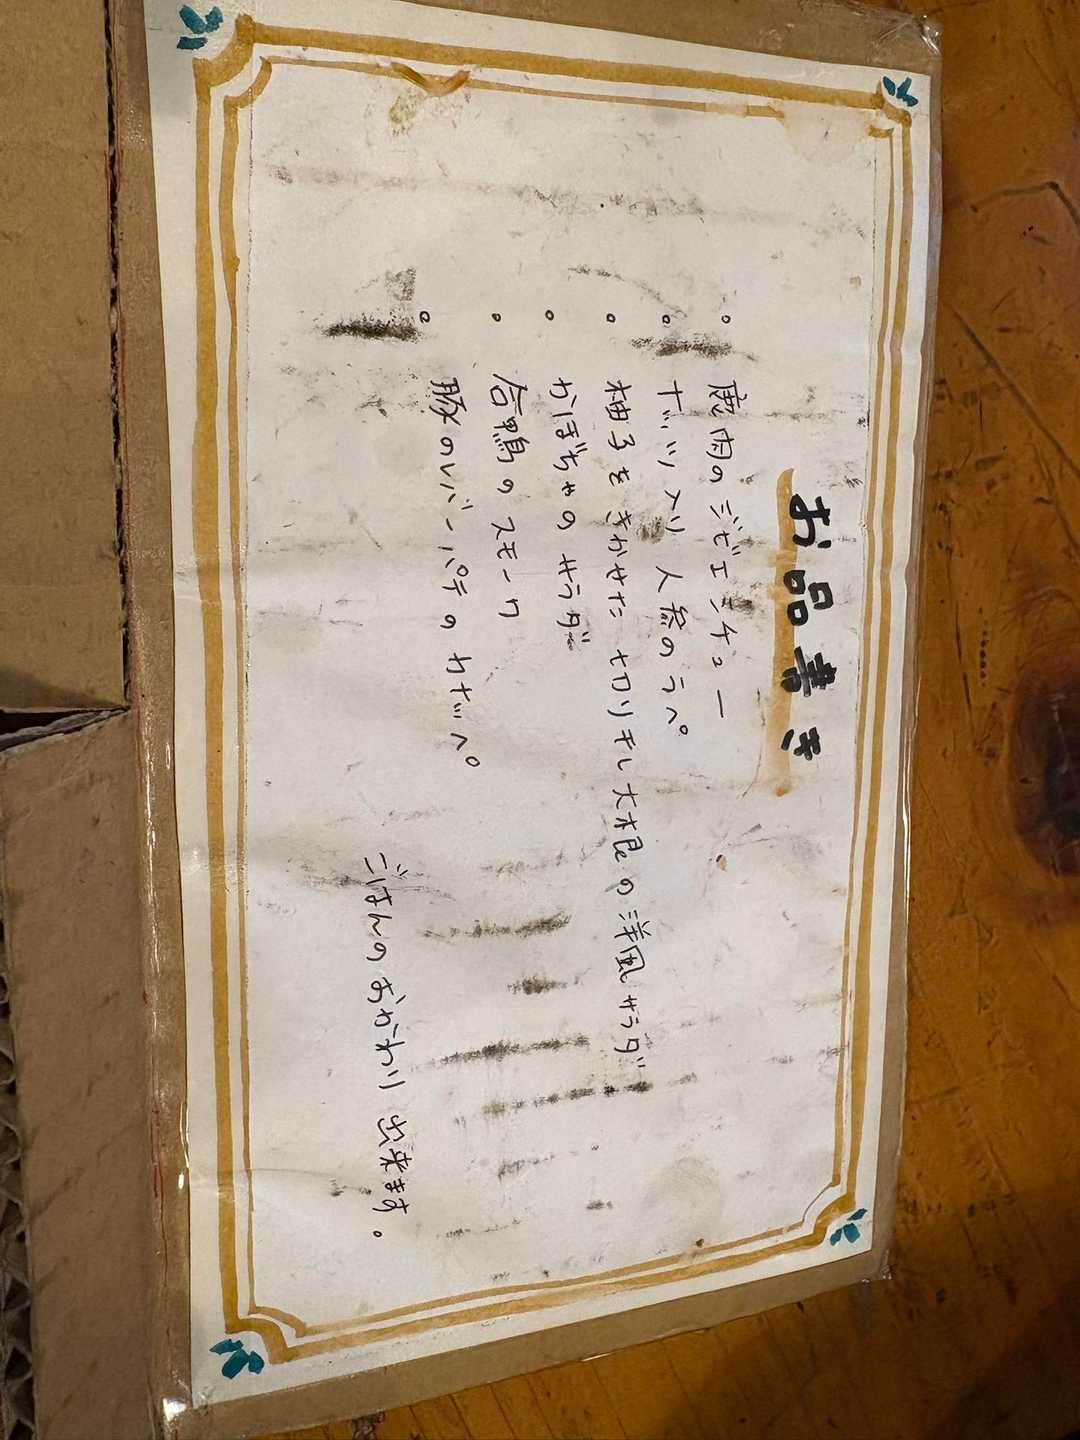 お品書き
。鹿肉のジビエシチュー
。ナッツ入り 人参のラペ
。柚子をきかせた 切り干し大根の洋風サラダ
。かぼちゃのサラダ
。合鴨のスモーク
。豚のレバーパテのカナッペ
ごはんのおかわり出来ます。